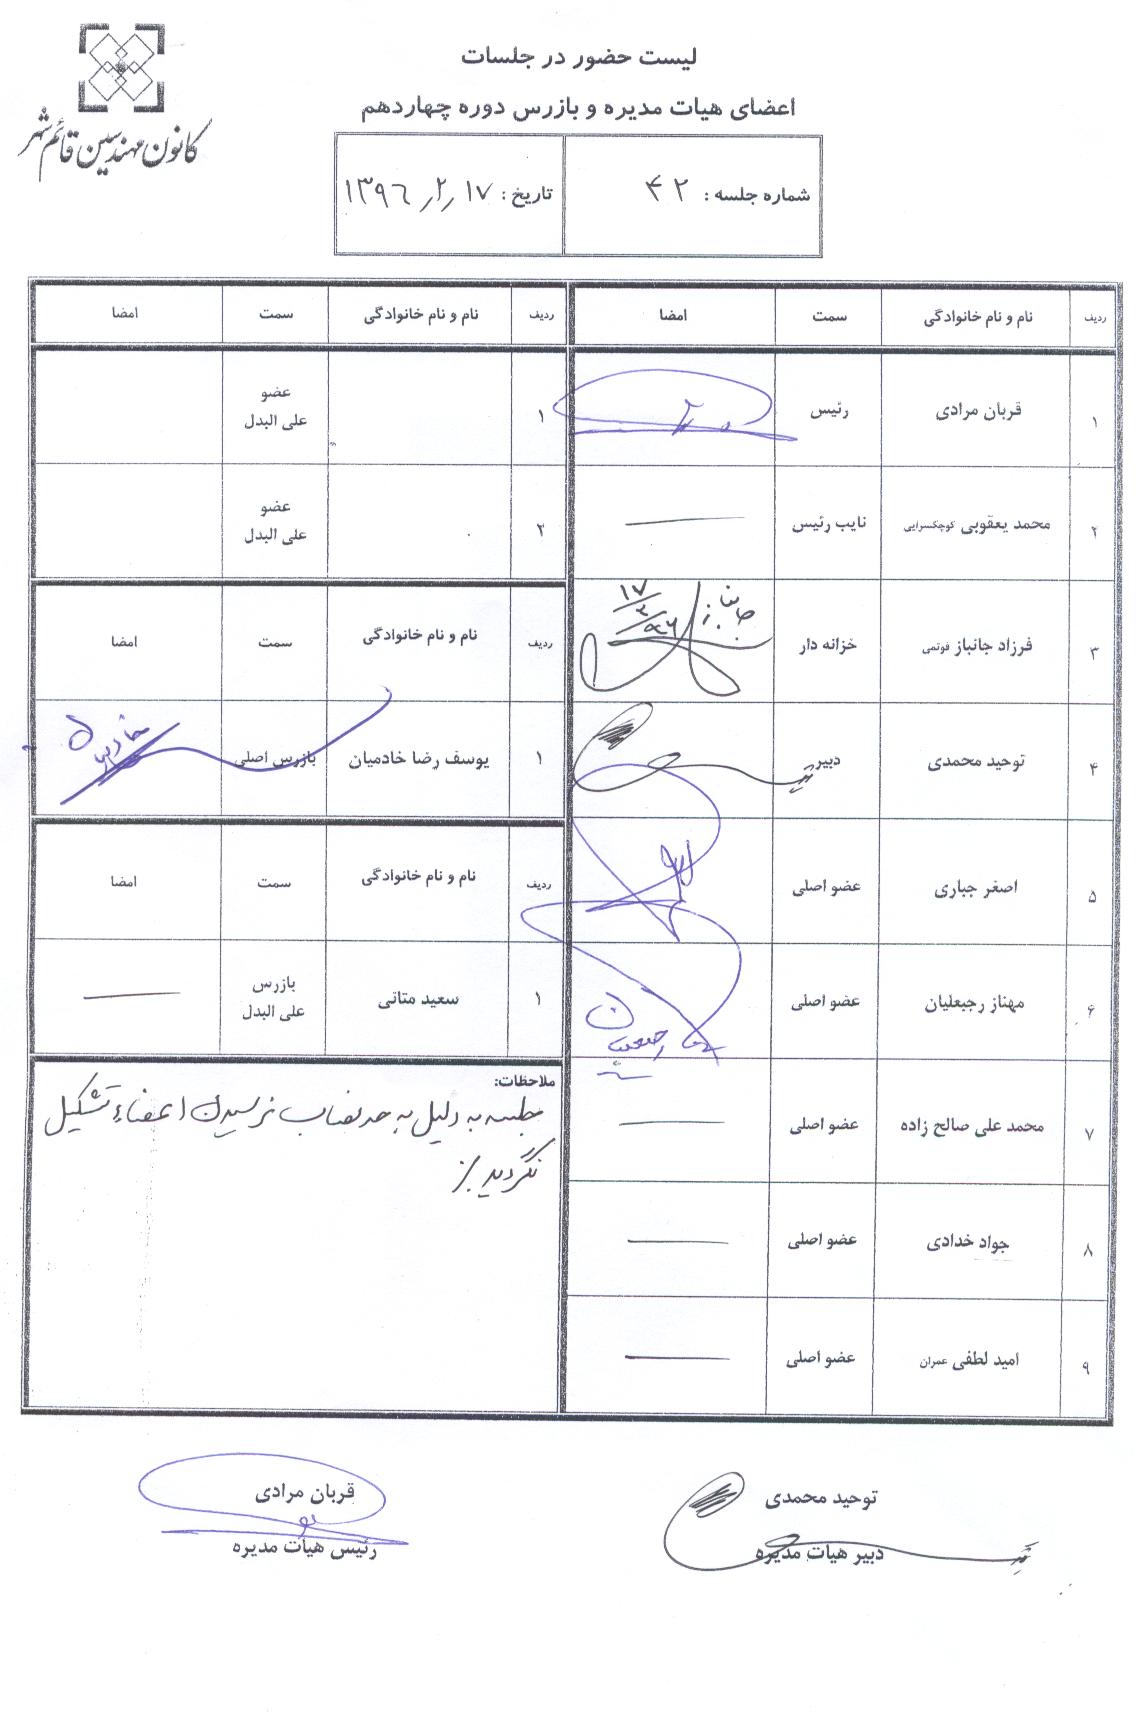 کانون مهندسین قائم شهر
لیست حضور در جلسات
اعضای هیات مدیره و بازرس دوره چهاردهم
شماره جلسه : ۴۲
تاریخ : ۱۳۹۶٫۲٫۱۷
ردیف نام و نام خانوادگی سمت امضا
۱ قربان مرادی رئیس
۲ محمد یعقوبی کوچکسرایی نایب رئیس —
۳ فرزاد جانباز فوتمی خزانه دار جانباز ۱۷/۲/۹۶
۴ توحید محمدی دبیر
۵ اصغر جباری عضو اصلی
۶ مهناز رجبعلیان عضو اصلی
۷ محمد علی صالح زاده عضو اصلی —
۸ جواد خدادی عضو اصلی —
۹ امید لطفی عمران عضو اصلی —
ردیف نام و نام خانوادگی سمت امضا
۱ عضو
علی البدل
۲ عضو
علی البدل
ردیف نام و نام خانوادگی سمت امضا
۱ یوسف رضا خادمیان بازرس اصلی
ردیف نام و نام خانوادگی سمت امضا
۱ سعید متانی بازرس
علی البدل —
ملاحظات:
جلسه به دلیل به حد نصاب نرسیدن اعضاء تشکیل
نگردید
توحید محمدی
دبیر هیات مدیره
قربان مرادی
رئیس هیات مدیره